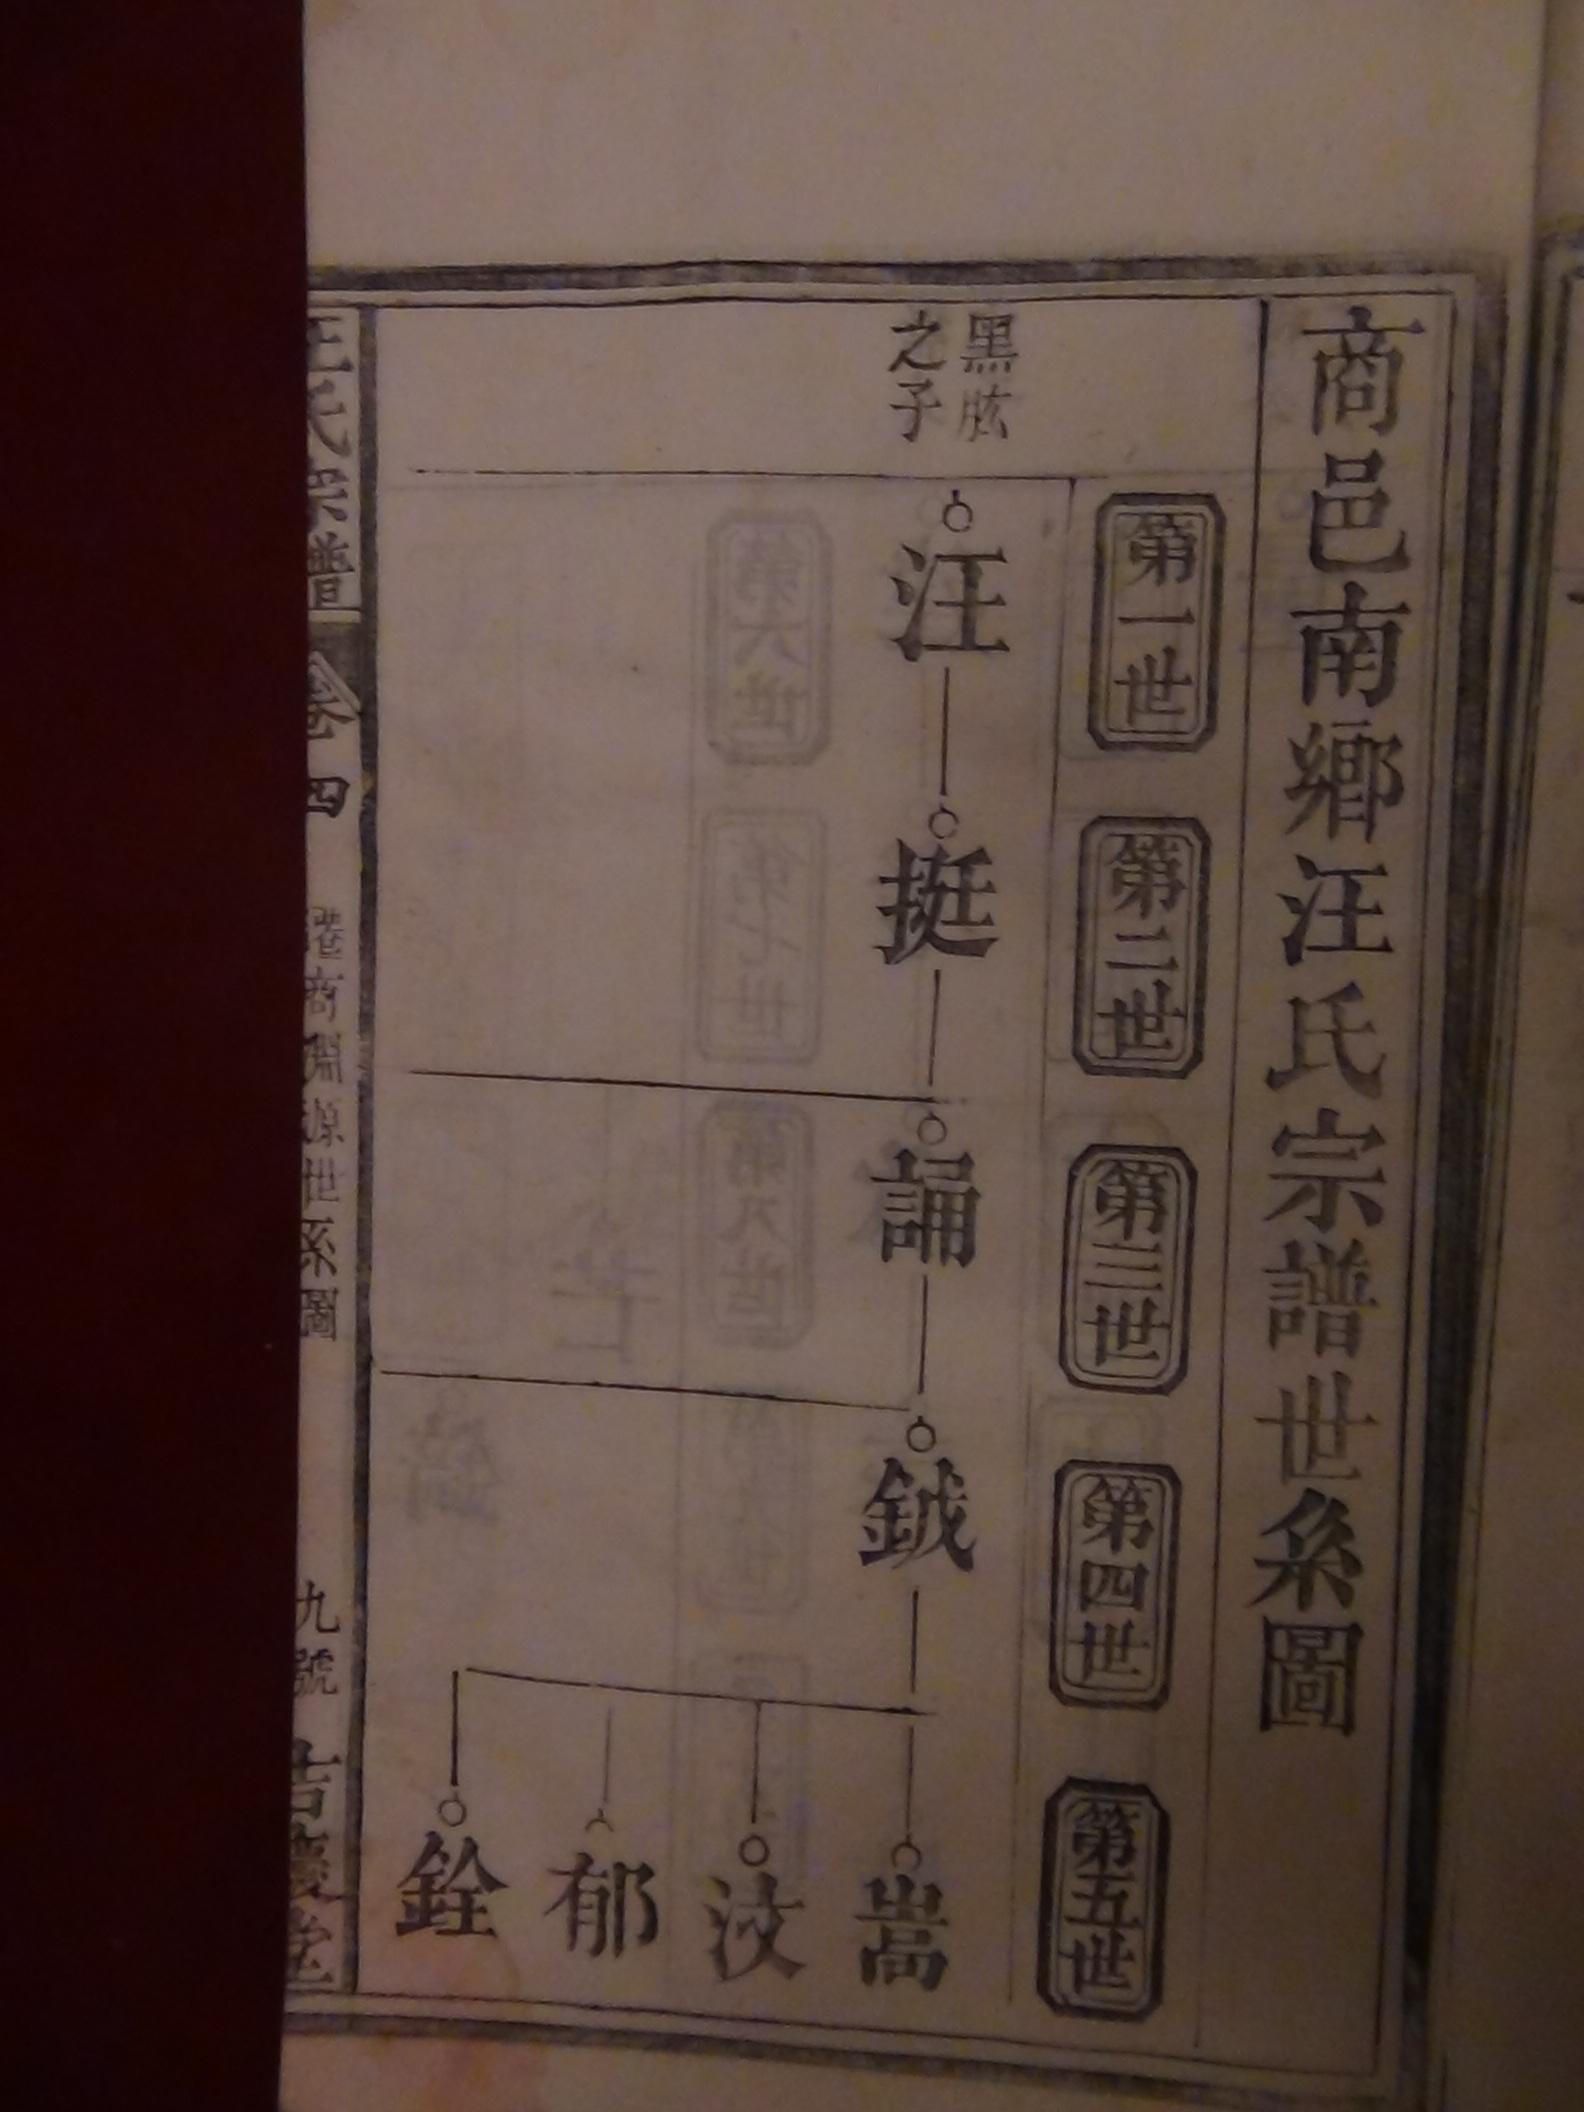 商邑南鄉汪氏宗譜世系圖
第一世
第二世
第三世
第四世
第五世
黑肱
之子
汪
挺
誦
鉞
嵩
汶
郁
銓
汪氏宗譜
卷四
商淵源世系圖
九號
吉慶堂